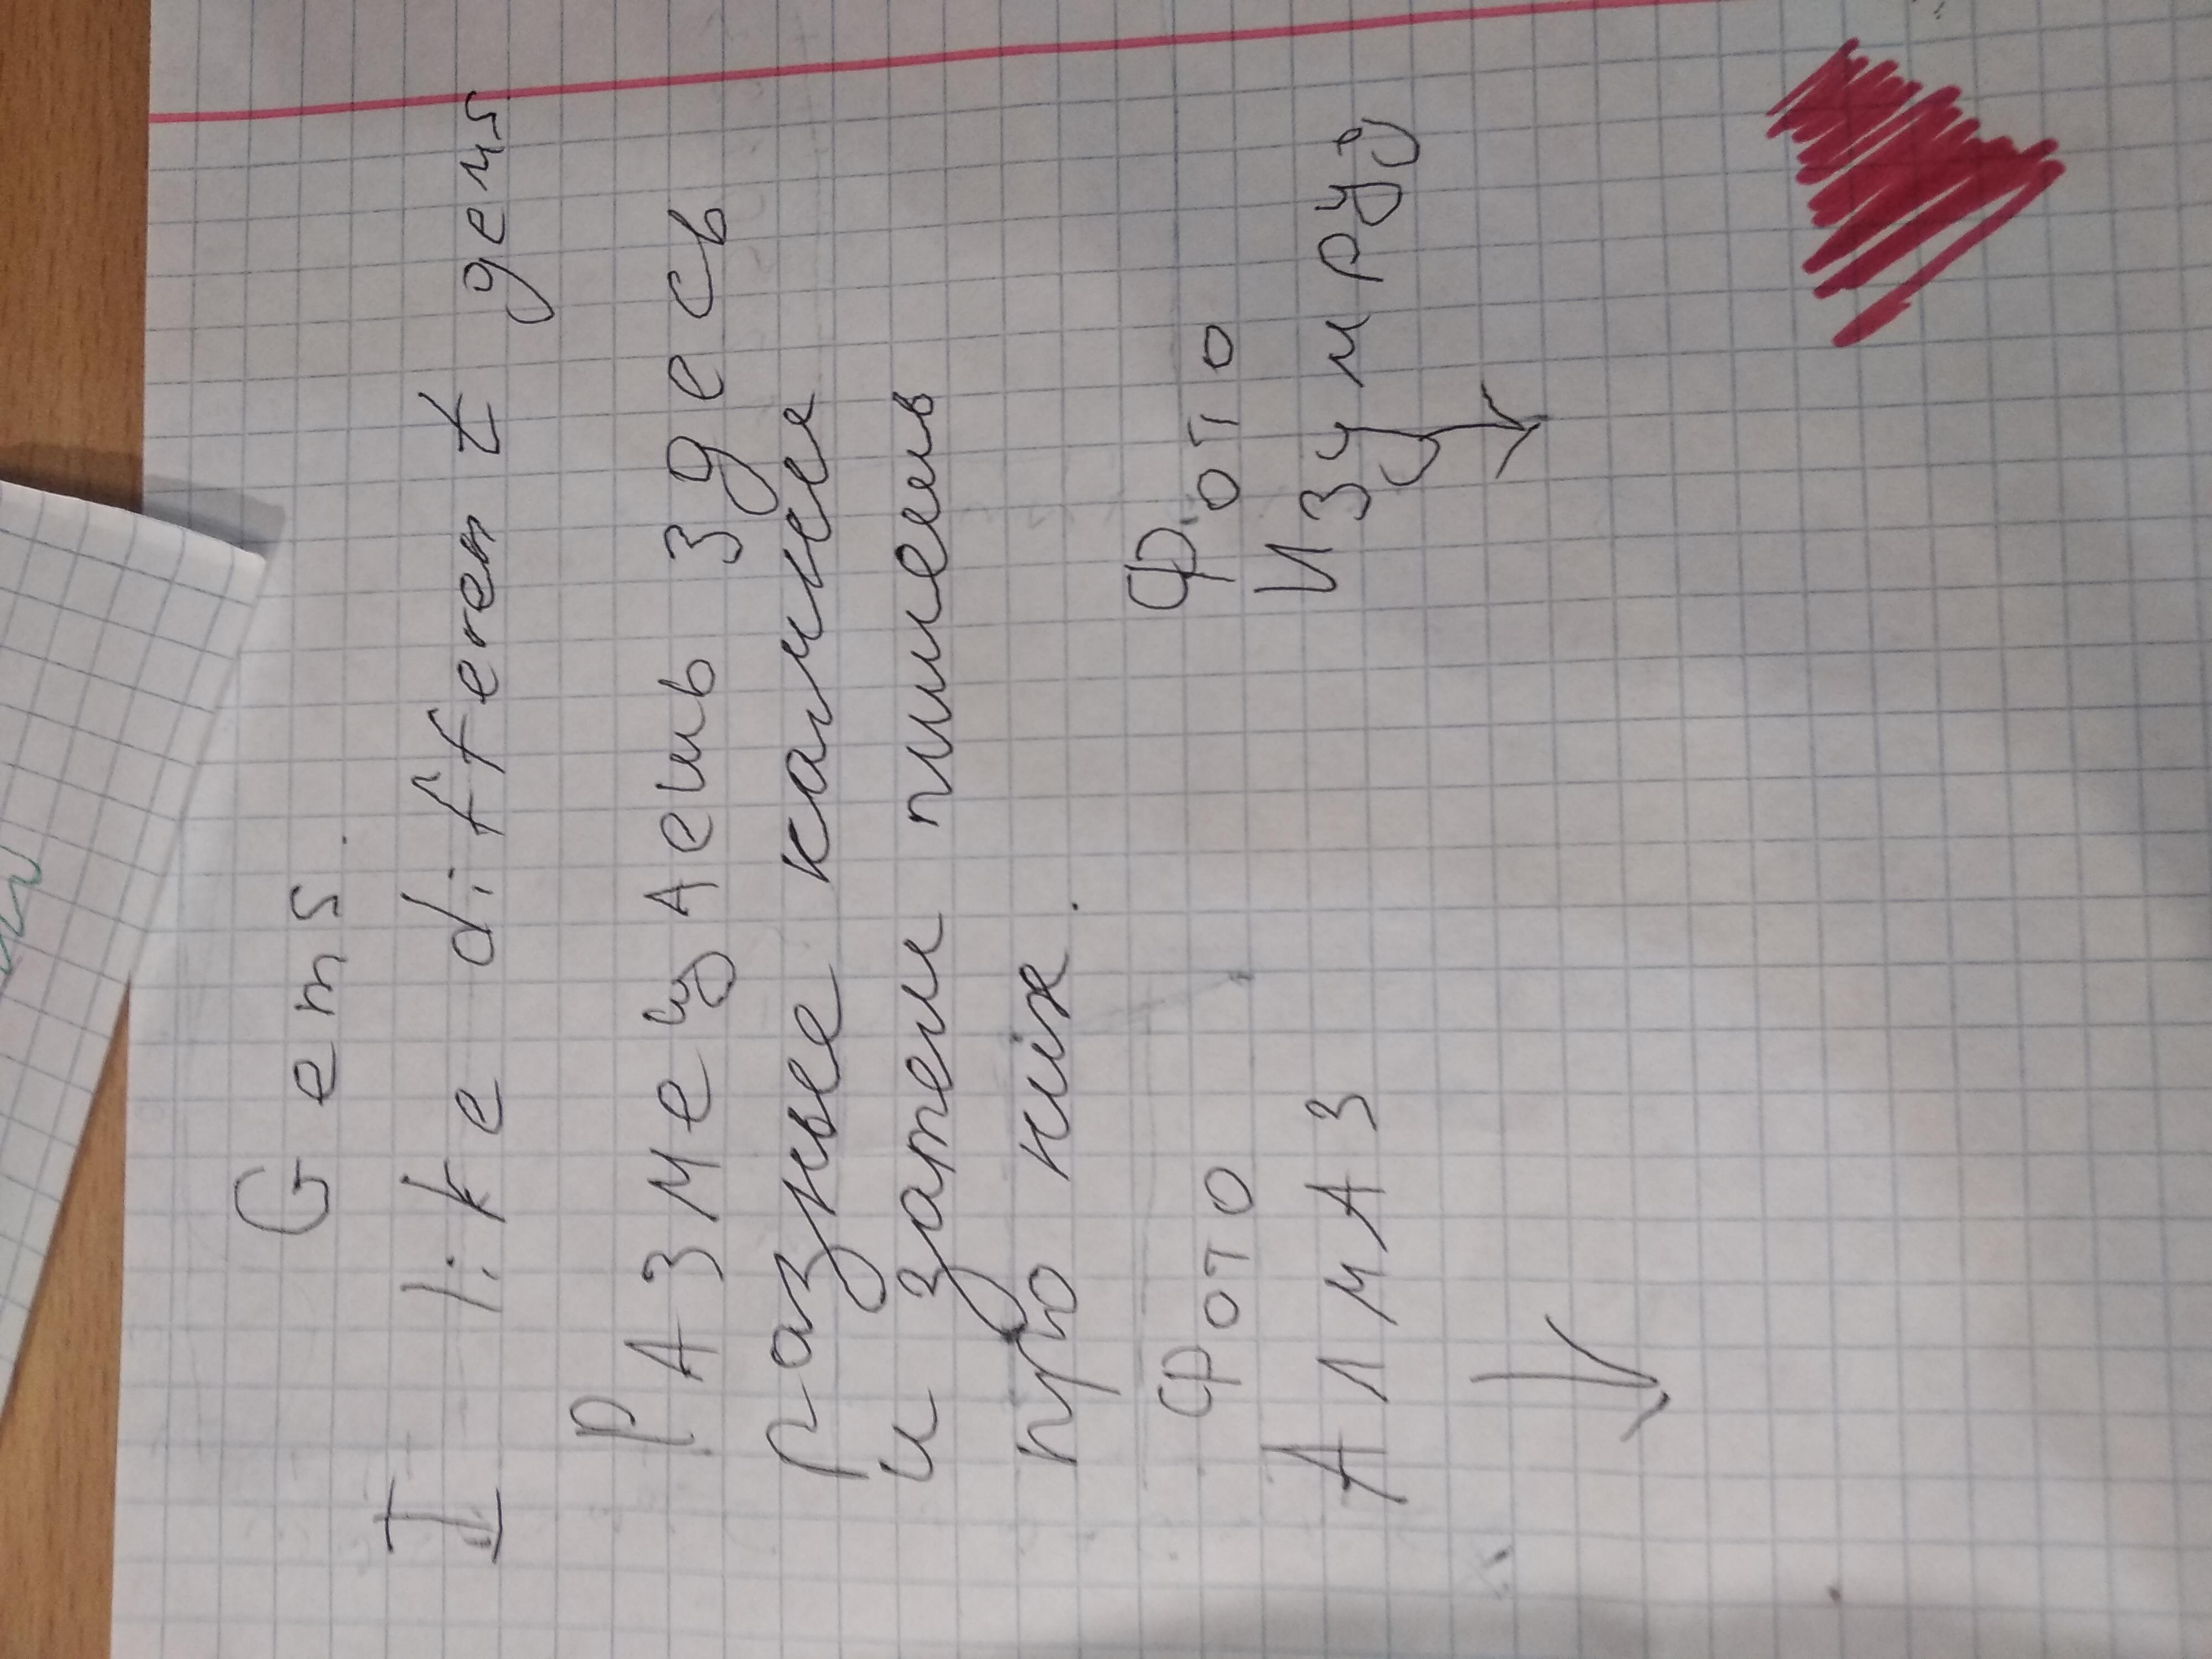 Gems.
I like different gems
РАЗМеЩАешь здесь
разные камние
и затем пишешь
про них.
Фото
Фото
Изумруд
Алмаз